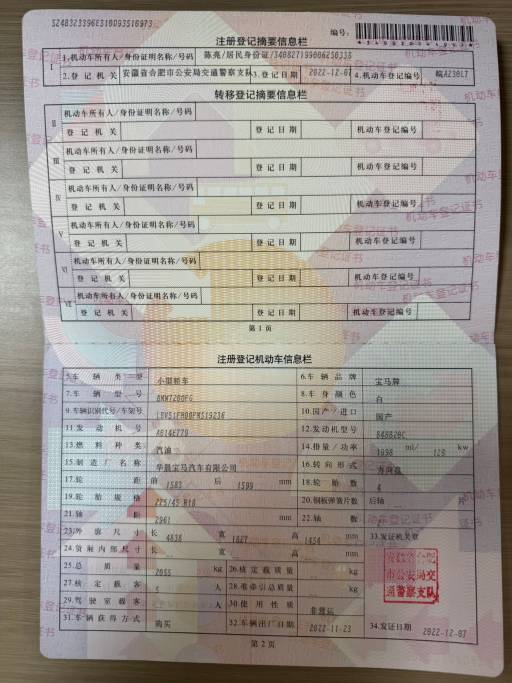 编号：
注册登记摘要信息栏
Ⅰ 1.机动车所有人/身份证明名称/号码 陈亮/居民身份证/
2.登记机关 安徽省合肥市公安局交通警察支队 3.登记日期 2022-12-07 4.机动车登记编号
转移登记摘要信息栏
Ⅱ 机动车所有人/身份证明名称/号码
登记机关 登记日期 机动车登记编号
Ⅲ 机动车所有人/身份证明名称/号码
登记机关 登记日期 机动车登记编号
Ⅳ 机动车所有人/身份证明名称/号码
登记机关 登记日期 机动车登记编号
Ⅴ 机动车所有人/身份证明名称/号码
登记机关 登记日期 机动车登记编号
Ⅵ 机动车所有人/身份证明名称/号码
登记机关 登记日期 机动车登记编号
Ⅶ 机动车所有人/身份证明名称/号码
登记机关 登记日期 机动车登记编号
第1页
注册登记机动车信息栏
5.车辆类型 小型轿车 6.车辆品牌 宝马牌
7.车辆型号 8.车身颜色 白
9.车辆识别代号/车架号 10.国产/进口 国产
11.发动机号 12.发动机型号
13.燃料种类 汽油 14.排量/功率 1998 ml/ kw
15.制造厂名称 华晨宝马汽车有限公司 16.转向形式 方向盘
17.轮距 前 1583 后 1599 mm 18.轮胎数 4
19.轮胎规格 225/45 R18 20.钢板弹簧片数 后轴 片
21.轴距 2961 mm 22.轴数
23.外廓尺寸 长 4838 宽 1827 高 1454 mm 33.发证机关章
24.货厢内部尺寸 长 宽 高 mm
25.总质量 kg 26.核定载质量 kg
27.核定载客 5 人 28.准牵引总质量 kg
29.驾驶室载客 人 30.使用性质 非营运
31.车辆获得方式 购买 32.车辆出厂日期 2022-11-23 34.发证日期 2022-12-07
市公安局交
通警察支队
第2页